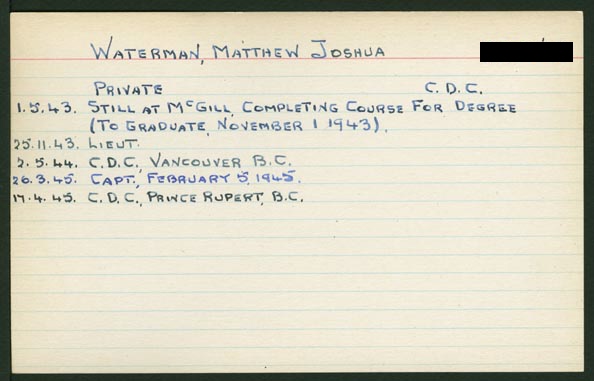 WATERMAN, MATTHEW JOSHUA
PRIVATE C.D.C.
1.5.43. STILL AT McGILL, COMPLETING COURSE FOR DEGREE
(TO GRADUATE, NOVEMBER 1 1943).
25.11.43. LIEUT.
2.5.44. C.D.C. VANCOUVER B.C.
26.3.45. CAPT., FEBRUARY 5, 1945.
17.4.45. C.D.C., PRINCE RUPERT, B.C.